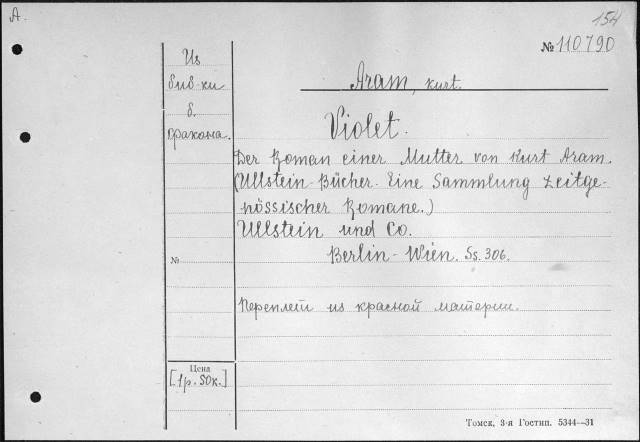 A.
154
№ 110790
Из
биб-ки
б.
Фракона.
Aram, Kurt.
Violet.
Der Roman einer Mutter von Kurt Aram.
(Ullstein-Bücher. Eine Sammlung zeitge-
nössischer Romane.)
Ullstein und Co.
Berlin-Wien. Ss. 306.
№
Переплет из красной материи.
Цена
[1р. 50к.]
Томск, 3-я Гостип. 5344—31